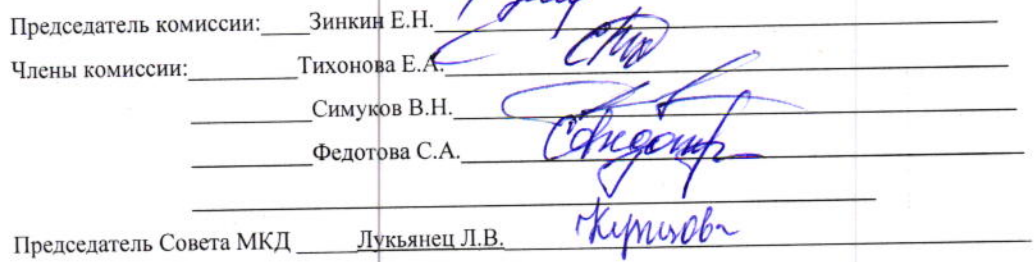 Председатель комиссии: Зинкин Е.Н.
Члены комиссии: Тихонова Е.А.
Симуков В.Н.
Федотова С.А.
Председатель Совета МКД Лукьянец Л.В.